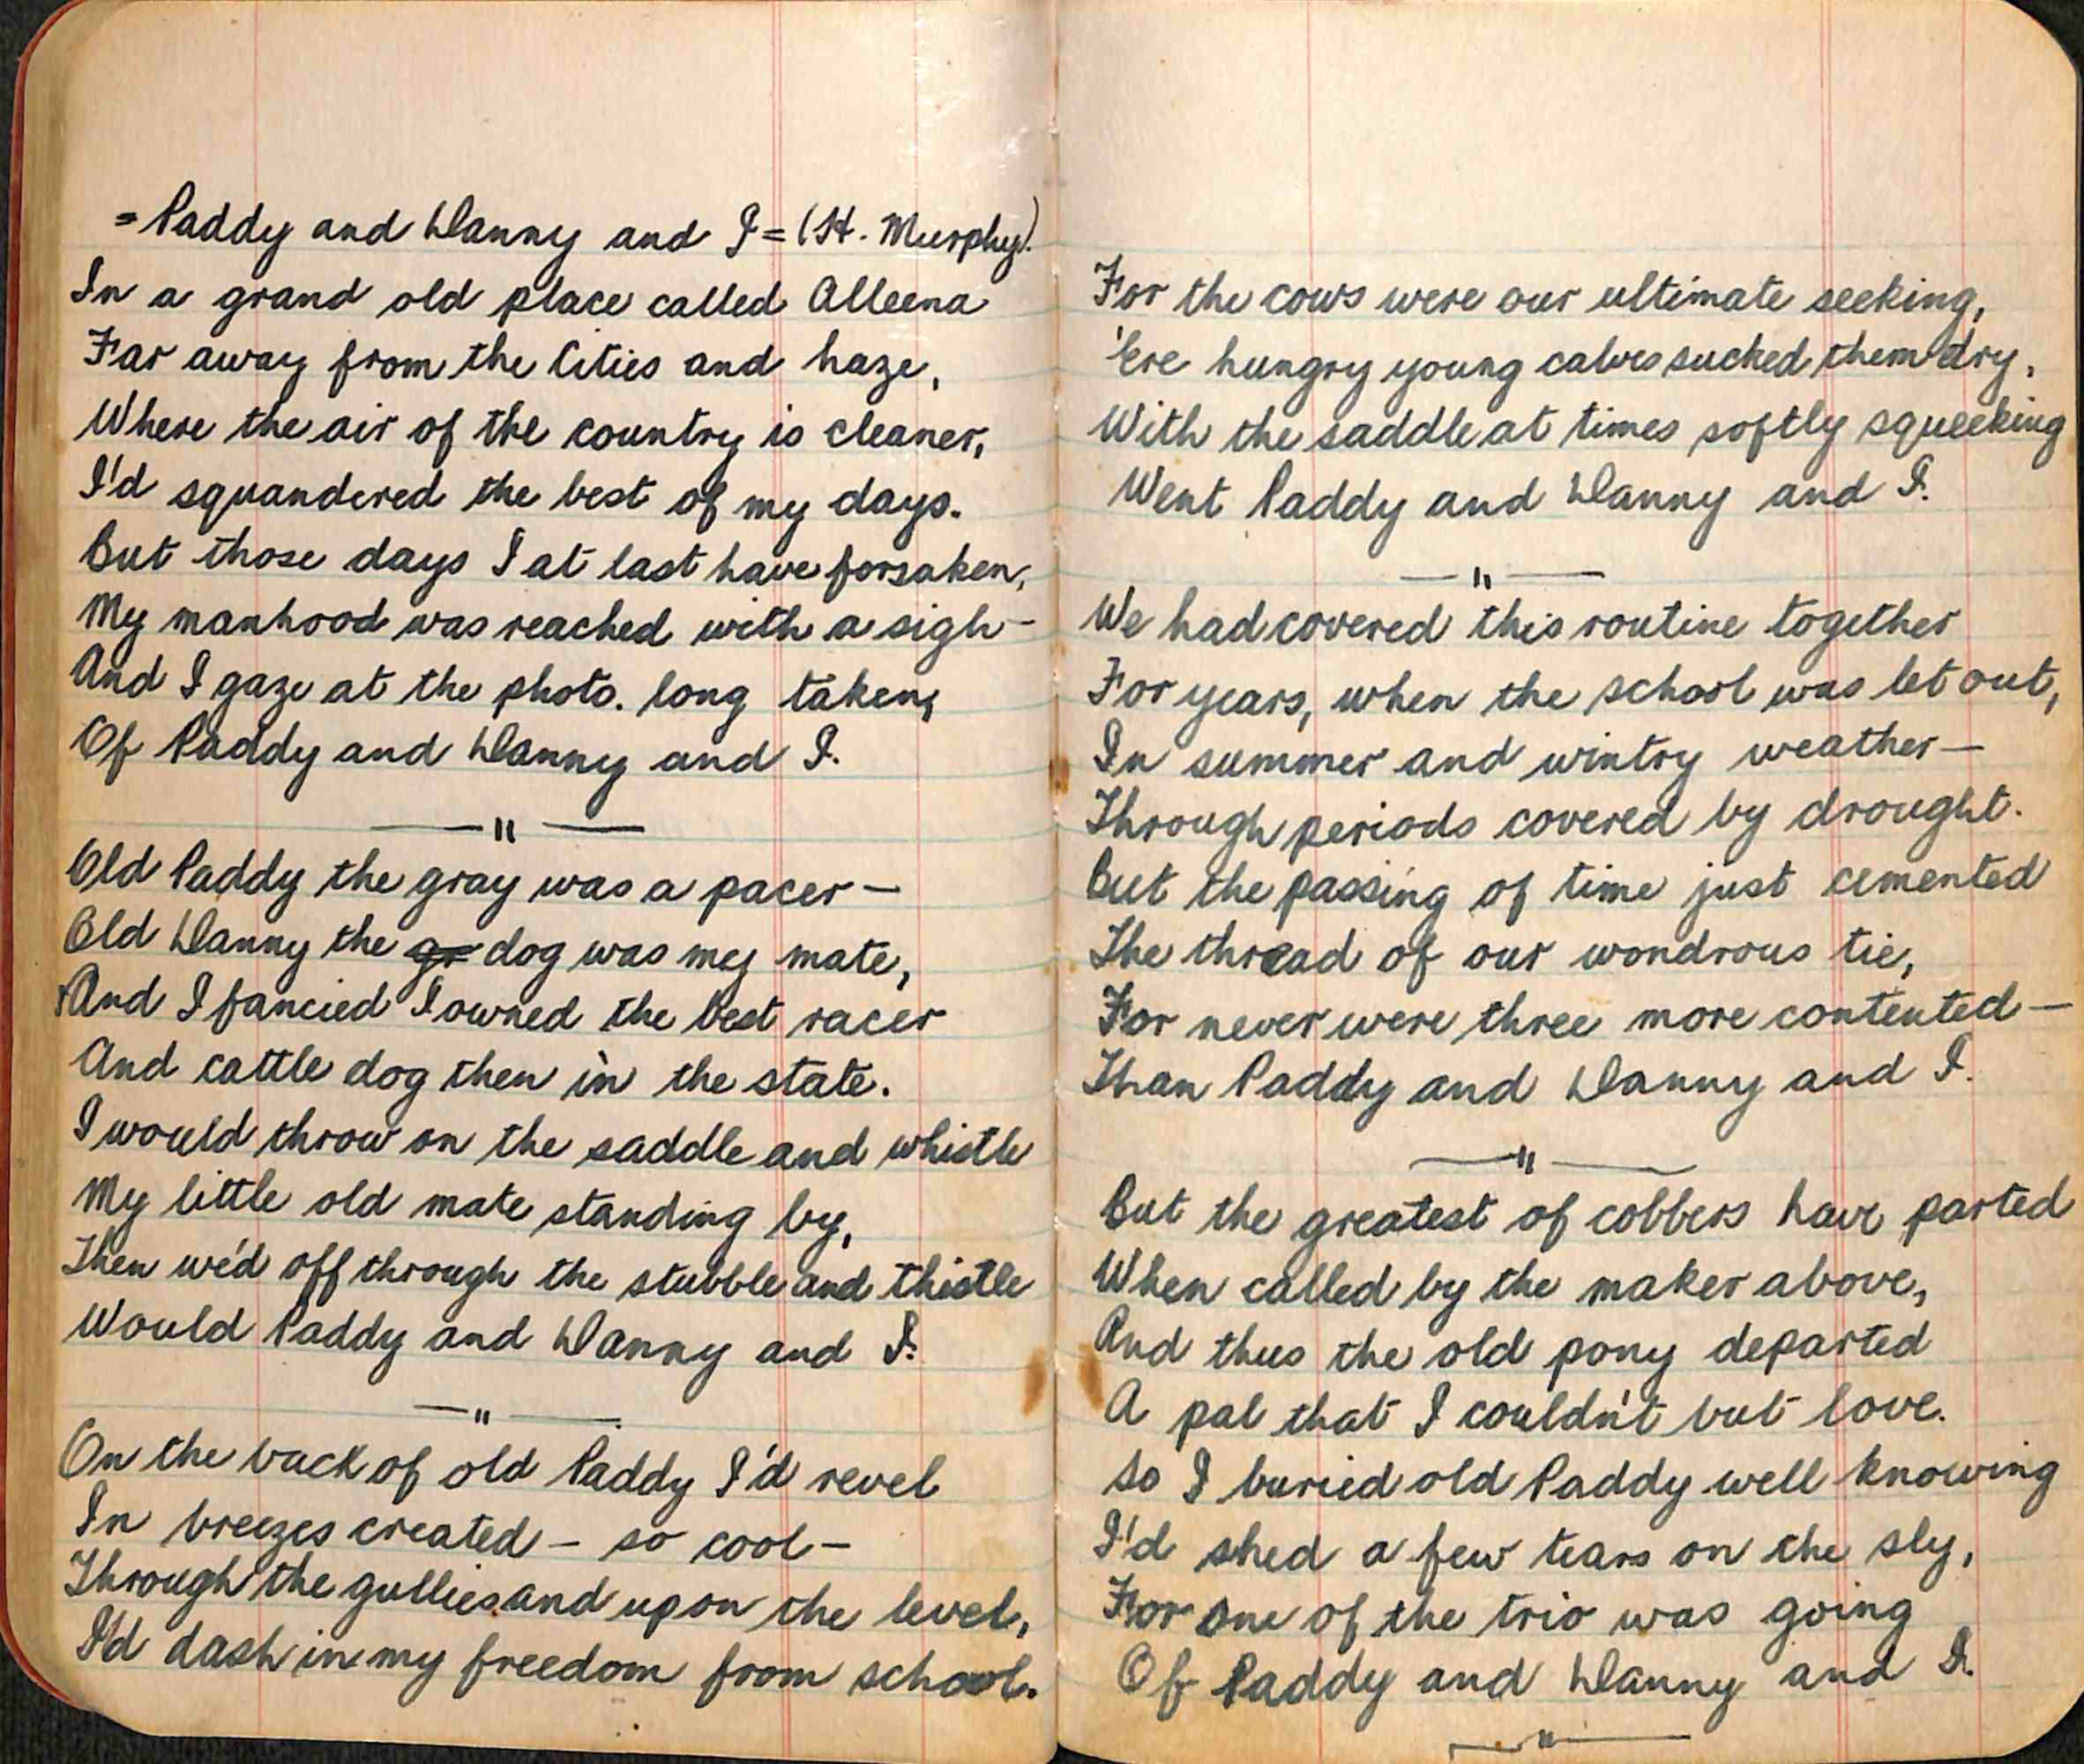 = Paddy and Danny and I = (H. Murphy).
In a grand old place called Alleena
Far away from the Cities and haze,
Where the air of the country is cleaner,
I'd squandered the best of my days.
But those days I at last have forsaken,
My manhood was reached with a sigh —
And I gaze at the photo. long taken,
Of Paddy and Danny and I.
— " —
Old Paddy the gray was a pacer —
Old Danny the gr dog was my mate,
And I fancied I owned the best racer
And cattle dog then in the state.
I would throw on the saddle and whistle
My little old mate standing by,
Then we'd off through the stubble and thistle
Would Paddy and Danny and I.
— " —
On the back of old Paddy I'd revel
In breezes created — so cool —
Through the gullies and upon the level,
I'd dash in my freedom from school.
For the cows were our ultimate seeking,
'Ere hungry young calves sucked them dry,
With the saddle at times softly squeeking
Went Paddy and Danny and I.
— " —
We had covered this routine together
For years, when the school was let out,
In summer and wintry weather —
Through periods covered by drought.
But the passing of time just cemented
The thread of our wondrous tie,
For never were three more contented —
Than Paddy and Danny and I.
— " —
But the greatest of cobbers have parted
When called by the maker above,
And thus the old pony departed
A pal that I couldn't but love.
So I buried old Paddy well knowing
I'd shed a few tears on the sly,
For one of the trio was going
Of Paddy and Danny and I.
— " —